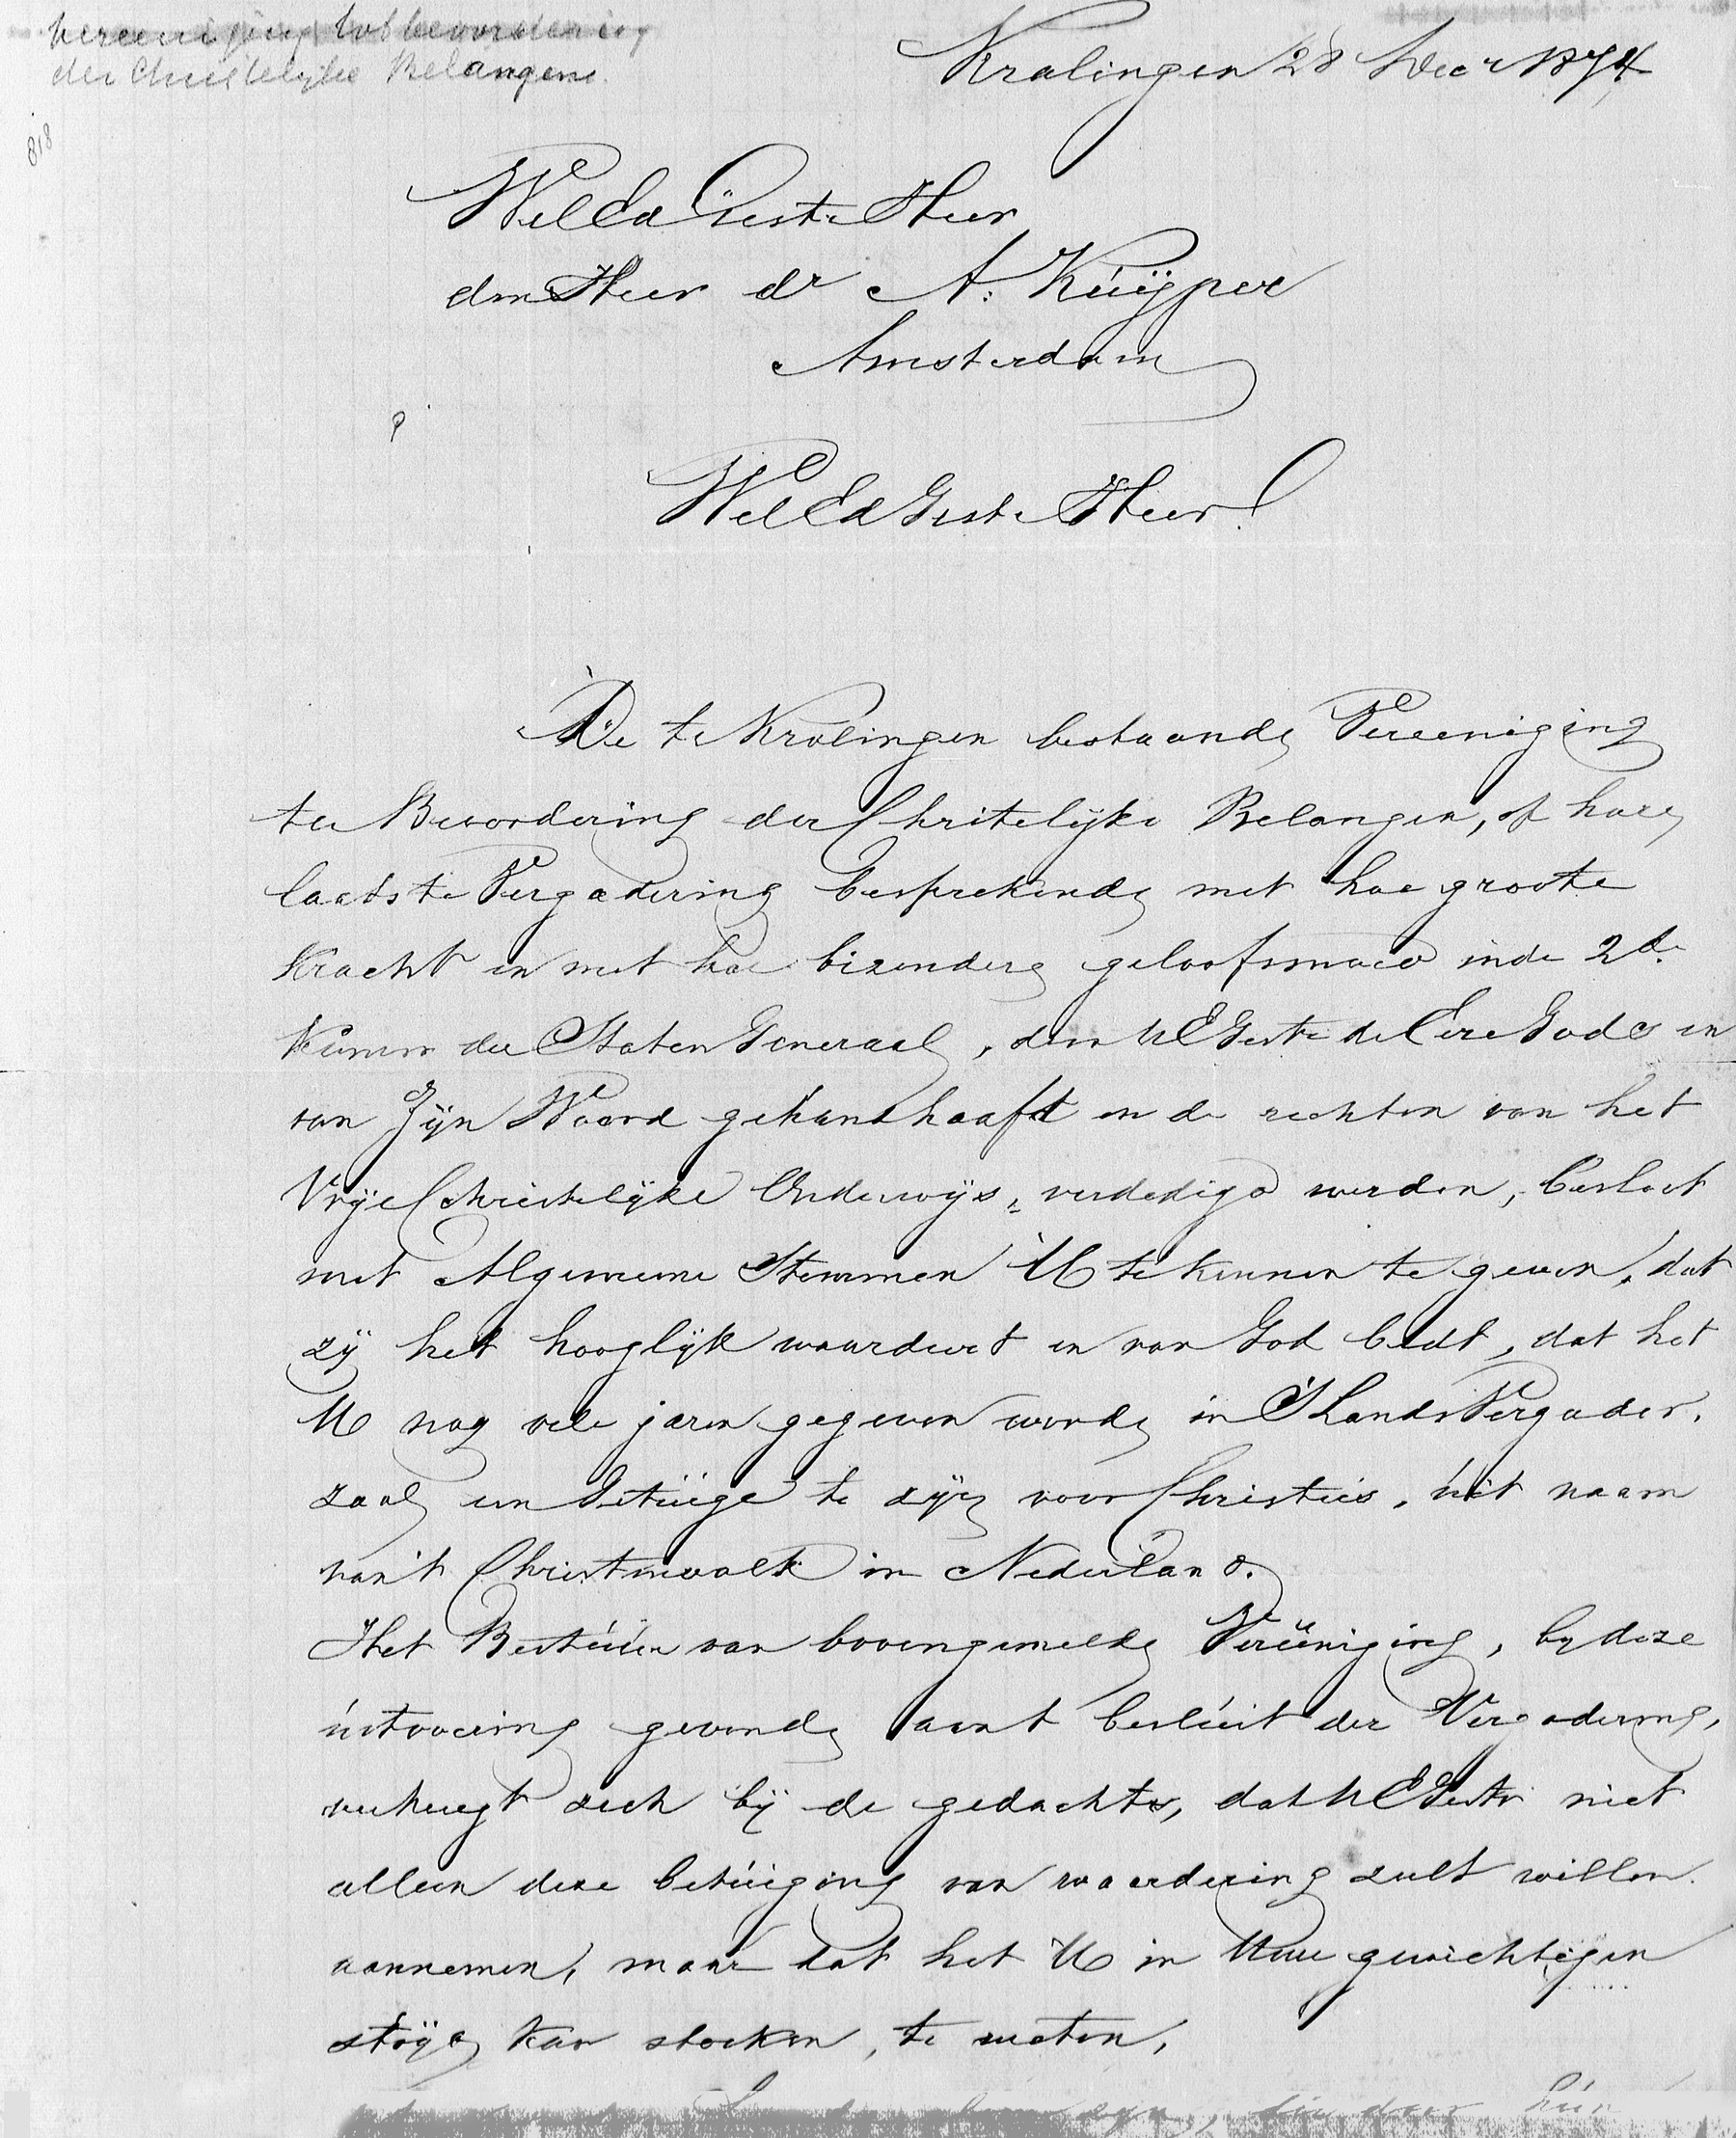 Vereeniging tot bevordering
der Christelijke Belangens.
Kralingen 28 Decr 1874
818
WelEd Geste Heer
den Heer dr A. Kuÿper
Amsterdam
WelEd Geste Heer!
De te Kralingen bestaande Vereeniging
ter Bevordering der Chritelijke Belangen, op hare
laatste Vergadering besprekende met hoe groote
kracht en met hoe bizondere geloofsmoed in de 2de
Kamer der Staten Generaal, door UEGeste de Eere Gods en
van Zijn Woord gehandhaaft en de rechten van het
Vrije Christelijke Onderwijs, verdedigd werden, besloot
met Algemeene Stemmen U te kennen te geven, dat
zij het hooglijk waardeert en van God bidt, dat het
U nog vele jaren gegeven worde in 'S Lands Vergader.
zaal een Getuige te zijn voor Christus, uit naam
van 't Christenvolk in Nederland.
Het Bestuur van bovengemelde Vereeniging, by deze
uitvoering gevende aan 't besluit der Vergadering,
verheugt zich bij de gedachte, dat UEGeste niet
alleen deze betuiging van waardering zult willen
aannemen, maar dat het U in Uwe gewichtigen
strijd kan sterken, te weten,
zijn, die door hun